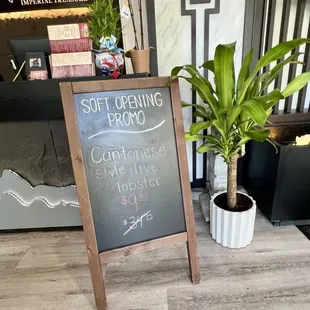 IMPERIAL TREASURE
SOFT OPENING
PROMO
Cantonese
style live
lobster